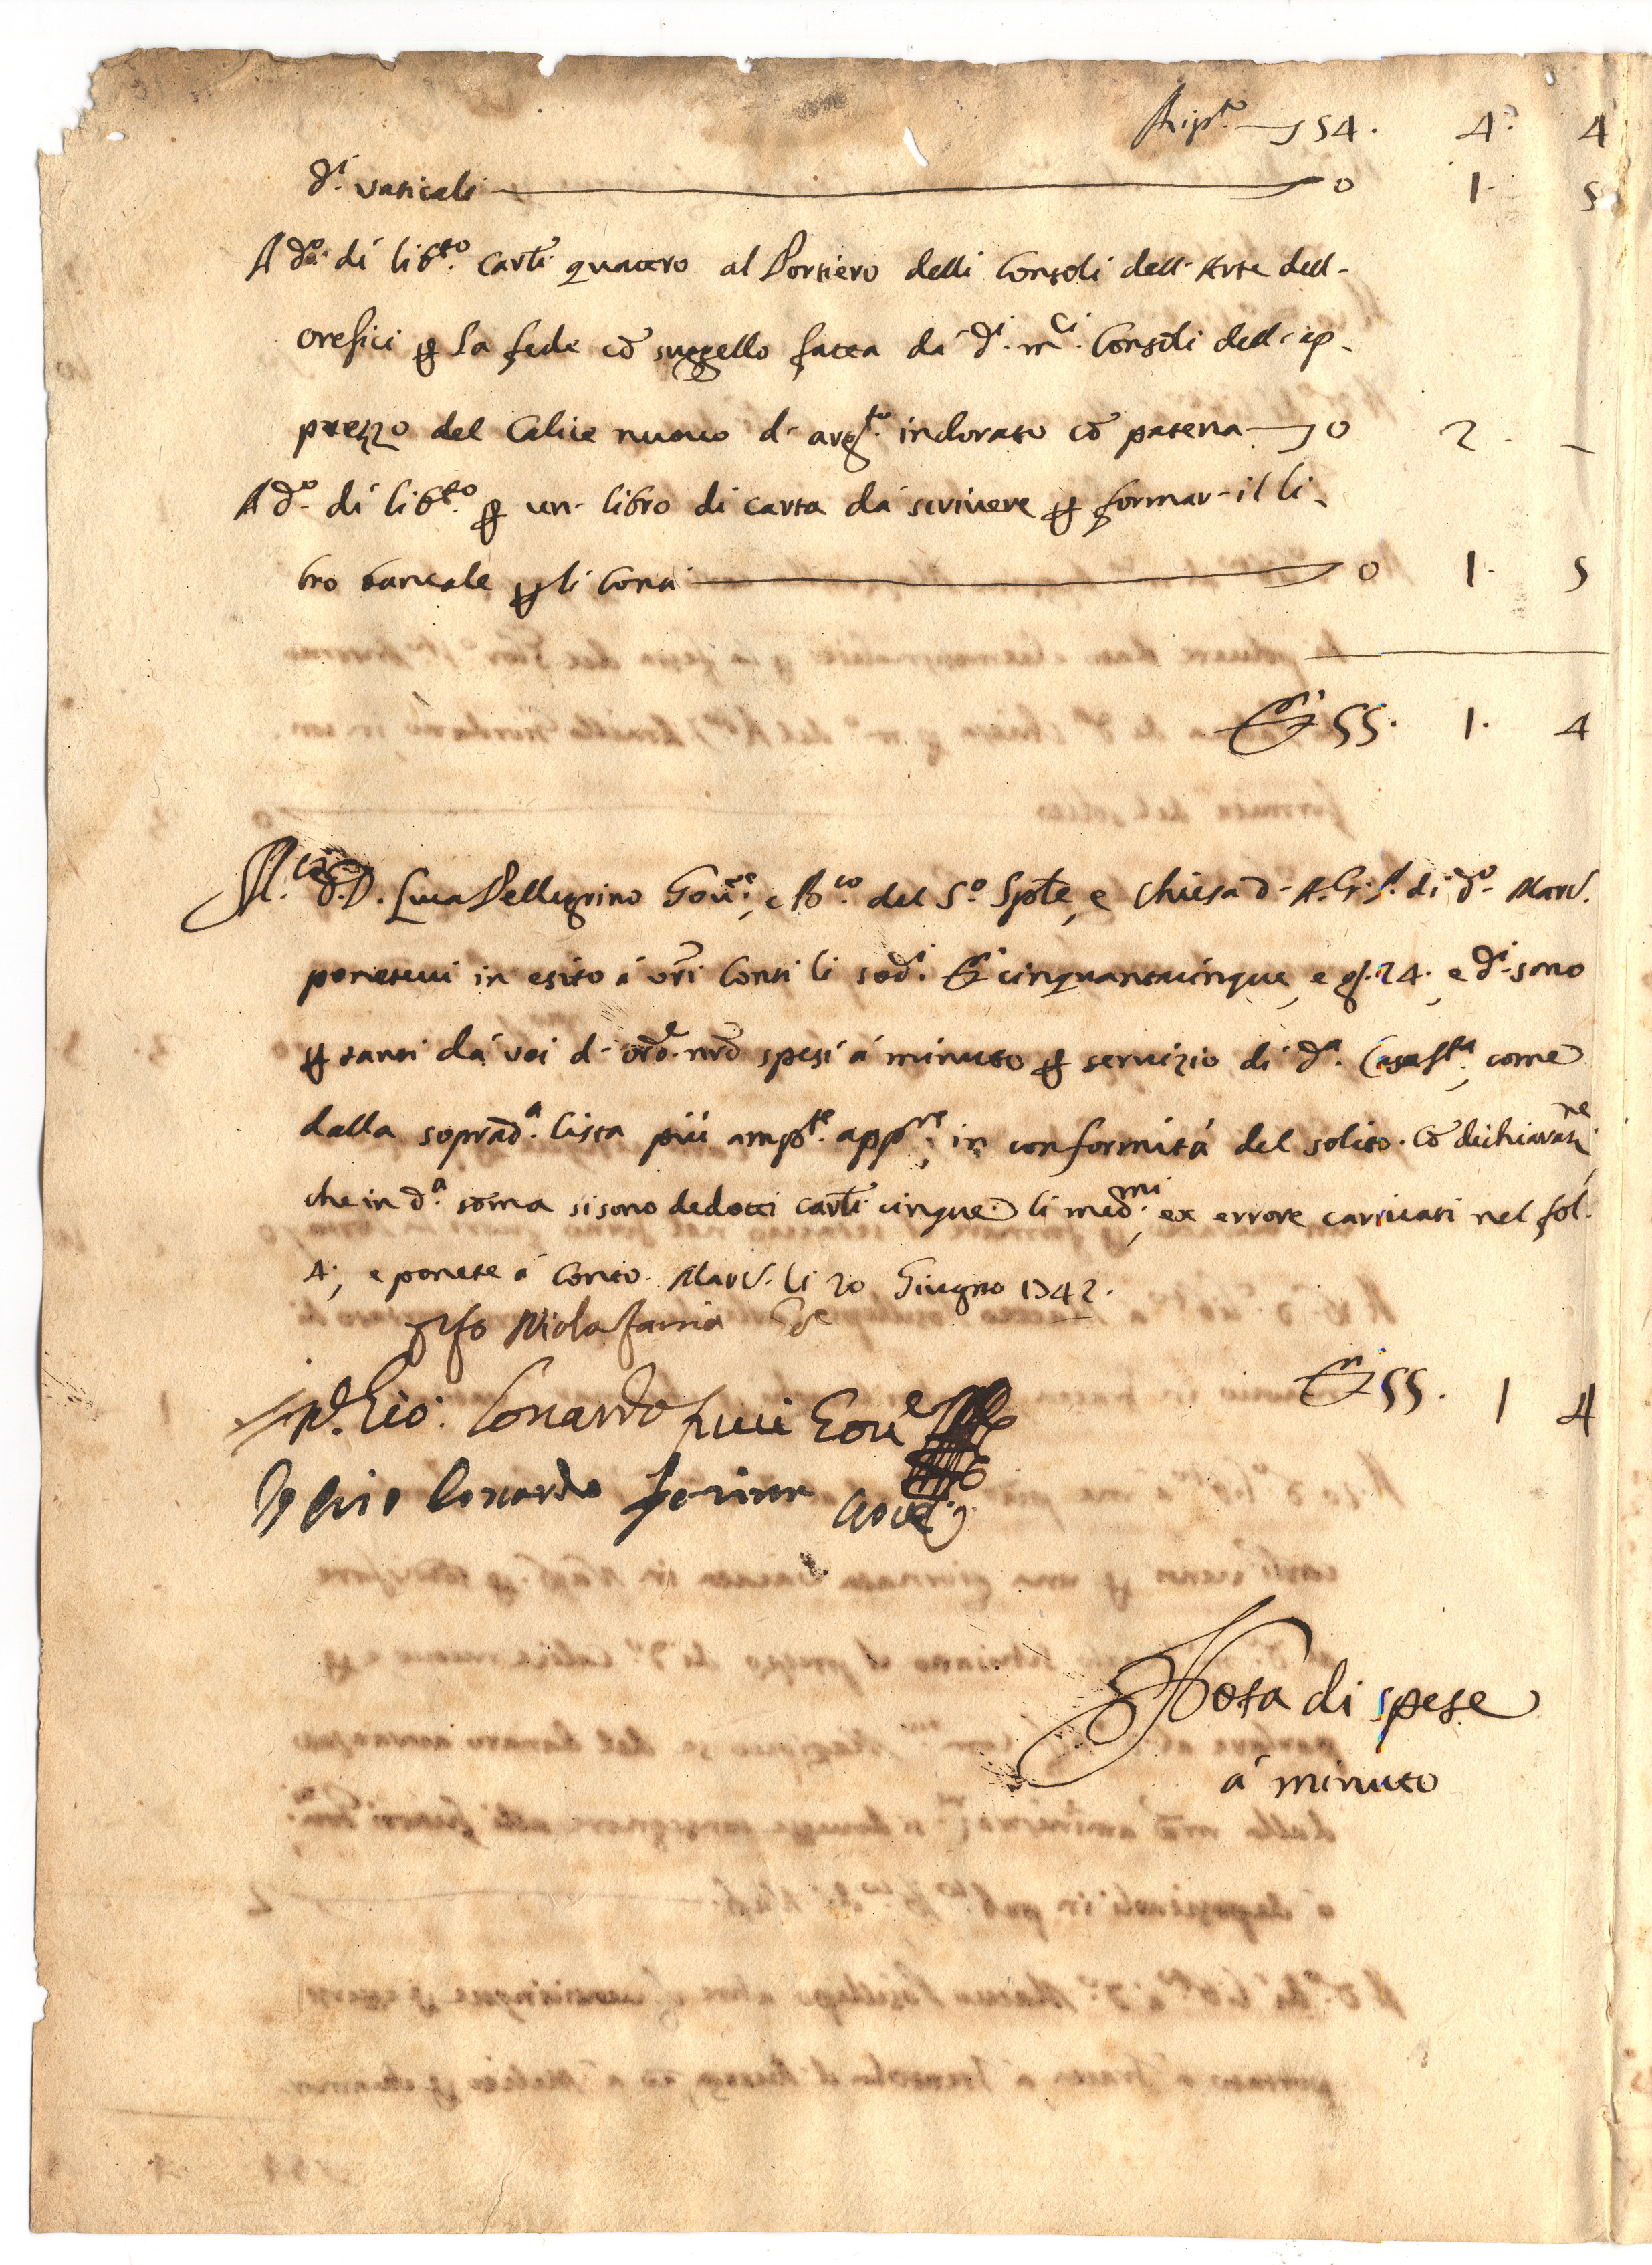 Ripto. 54. 4. 4
di. vaticali 0 1. 5
A do. di libto. carlí quattro al Portiero delli Consoli dell'Arte dell'
orefici p la fede cō suggello fatta da di. mci. Consoli dell'ap-
prezzo del Calice nuovo d'argto. indorato cō patena 0 2. -
A do. di libto. p un libro di carta da scrivere p formar il li-
bro p li Conti 0 1. 5
55. 1. 4
D. Luca Pellegrino Goure., e del So. Spēle, e Chiesa d' A.G.P. di do. Mard.
ponetevi in esito á vri Conti li sodi. cinquantacinque, e g. 24. e di. sono
p tanti dá voi d' orde. nrō spesi á minuto p servizio di da. Casa Sta., come
dalla soprada. lista piú ampte. appre., in conformitá del solito. Cō dichiaratne.
che in da. sōma si sono dedotti carlí cinque li medmi., ex errore caricati nel fol.
A., e ponete á Conto. Mard. li 20 Giugno 1742.
55. 1 4
Gio: Lonardo Goue
Lonardo
Nota di spese
á minuto